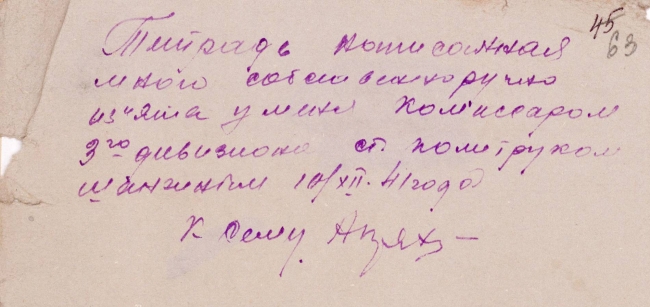 45
63
Тетрадь нописанная
мною собственноручно
из"ята у меня Комиссаром
3го дивизиона ст. политруком
10/XII-41 года
К сему